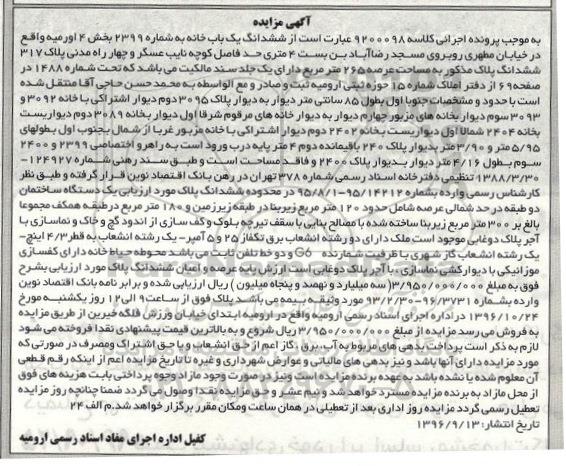 آگهی مزایده
به موجب پرونده اجرائی کلاسه ۹۲۰۰۰۹۸ عبارت است از ششدانگ یک باب خانه به شماره ۲۳۹۹ بخش ۴ اورمیه واقع
در خیابان مطهری روبروی مسجد رضاآباد بن بست ۴ متری حد فاصل کوچه نایب عسگر و چهار راه مدنی پلاک ۳۱۷
ششدانگ پلاک مذکور به مساحت عرصه ۲۶۵ متر مربع دارای یک جلد سند مالکیت می باشد که تحت شماره ۱۴۸۸ در
صفحه ۶۹ از دفتر املاک شماره ۱۵ حوزه ثبتی ارومیه ثبت و صادر و مع الواسطه به محمدحسن حاجی آقا منتقل شده
است با حدود و مشخصات جنوبا اول بطول ۸۵ سانتی متر دیوار به دیوار پلاک ۳۰۹۵ دوم دیوار اشتراکی با خانه ۳۰۹۲ و
۳۰۹۳ سوم دیوار بخانه های مزبور چهارم دیوار به دیوار خانه های مرقوم شرقا اول دیوار بخانه ۳۰۸۹ دوم دیواریست
بخانه ۲۴۰۴ شمالا اول دیواریست بخانه ۲۴۰۲ دوم دیوار اشتراکی با خانه مزبور غربا از شمال بجنوب اول بطولهای
۵/۹۵ متر و ۳/۹۰ متر پدیوار پلاک ۲۴۰۰ باقیمانده دوم ۴ متر پایه درب ورود است به راهرو اختصاصی ۲۳۹۹ و ۲۴۰۰
سوم بطول ۴/۱۶ متر دیوار بدیوار پلاک ۲۴۰۰ و فاقد مساحت است و طبق سند رهنی شماره ۱۲۴۹۲۷-
۱۳۸۸/۳/۳۰ تنظیمی دفترخانه اسناد رسمی شماره ۳۷۸ تهران در رهن بانک اقتصاد نوین قرار گرفته و طبق نظر
کارشناس رسمی وارده بشماره ۹۵/۱۴۲۱۲-۹۵/۸/۱ در محدوده ششدانگ پلاک مورد ارزیابی یک دستگاه ساختمان
دو طبقه در حد شمالی عرصه شامل حدود ۱۲۰ متر مربع زیربنا در طبقه زیرزمین و ۱۸۰ متر مربع درطبقه همکف مجموعا
بالغ بر ۳۰۰ متر مربع زیربنا ساخته شده با مصالح بنایی با سقف تیرچه بلوک و کف سازی از اندود گچ و خاک و نماسازی با
آجر پلاک دوغابی موجود است ملک دارای دو رشته انشعاب برق تکفاز ۲۵ و ۵ آمپر - یک رشته انشعاب به قطر ۳/۴ اینچ-
یک رشته انشعاب گاز شهری با ظرفیت شمارنده G6 و دو خط تلفن ثابت می باشد محوطه حیاط خانه دارای کفسازی
موزائیکی با دیوارکشی نماسازی با آجر پلاک دوغابی است ارزش پایه عرصه و اعیان ششدانگ پلاک مورد ارزیابی بشرح
فوق به مبلغ ۳/۹۵۰/۰۰۰/۰۰۰ (سه میلیارد و نهصد و پنجاه میلیون) ریال ارزیابی شده و برابر نامه بانک اقتصاد نوین
وارده بشماره ۹۶/۳۷۳۱-۹۳/۲/۳۰ مورد وثیقه بیمه می باشد پلاک فوق از ساعت ۹ الی ۱۲ روز یکشنبه مورخ
۱۳۹۶/۱۰/۲۴ دراداره اجرای اسناد رسمی ارومیه واقع در ارومیه ابتدای خیابان ورزش فلکه خیرین از طریق مزایده
به فروش می رسد مزایده از مبلغ ۳/۹۵۰/۰۰۰/۰۰۰ ریال شروع و به بالاترین قیمت پیشنهادی نقدا فروخته می شود
لازم به ذکر است پرداخت بدهی های مربوط به آب، برق، گاز اعم از حق انشعاب و یا حق اشتراک ومصرف در صورتی که
مورد مزایده دارای آنها باشد ونیز بدهی های مالیاتی و عوارض شهرداری و غیره تا تاریخ مزایده اعم از اینکه رقم قطعی
آن معلوم شده یا نشده باشد به عهده برنده مزایده است ونیز در صورت وجود مازاد وجوه پرداختی بابت هزینه های فوق
از محل مازاد به برنده مزایده مسترد خواهد شد و نیم عشر و حق مزایده نقدا وصول می گردد ضمنا چنانچه روز مزایده
تعطیل رسمی گردد مزایده روز اداری بعد از تعطیلی در همان ساعت ومکان مقرر برگزار خواهد شد.م الف ۲۴
تاریخ انتشار: ۱۳۹۶/۹/۱۳
کفیل اداره اجرای مفاد اسناد رسمی ارومیه